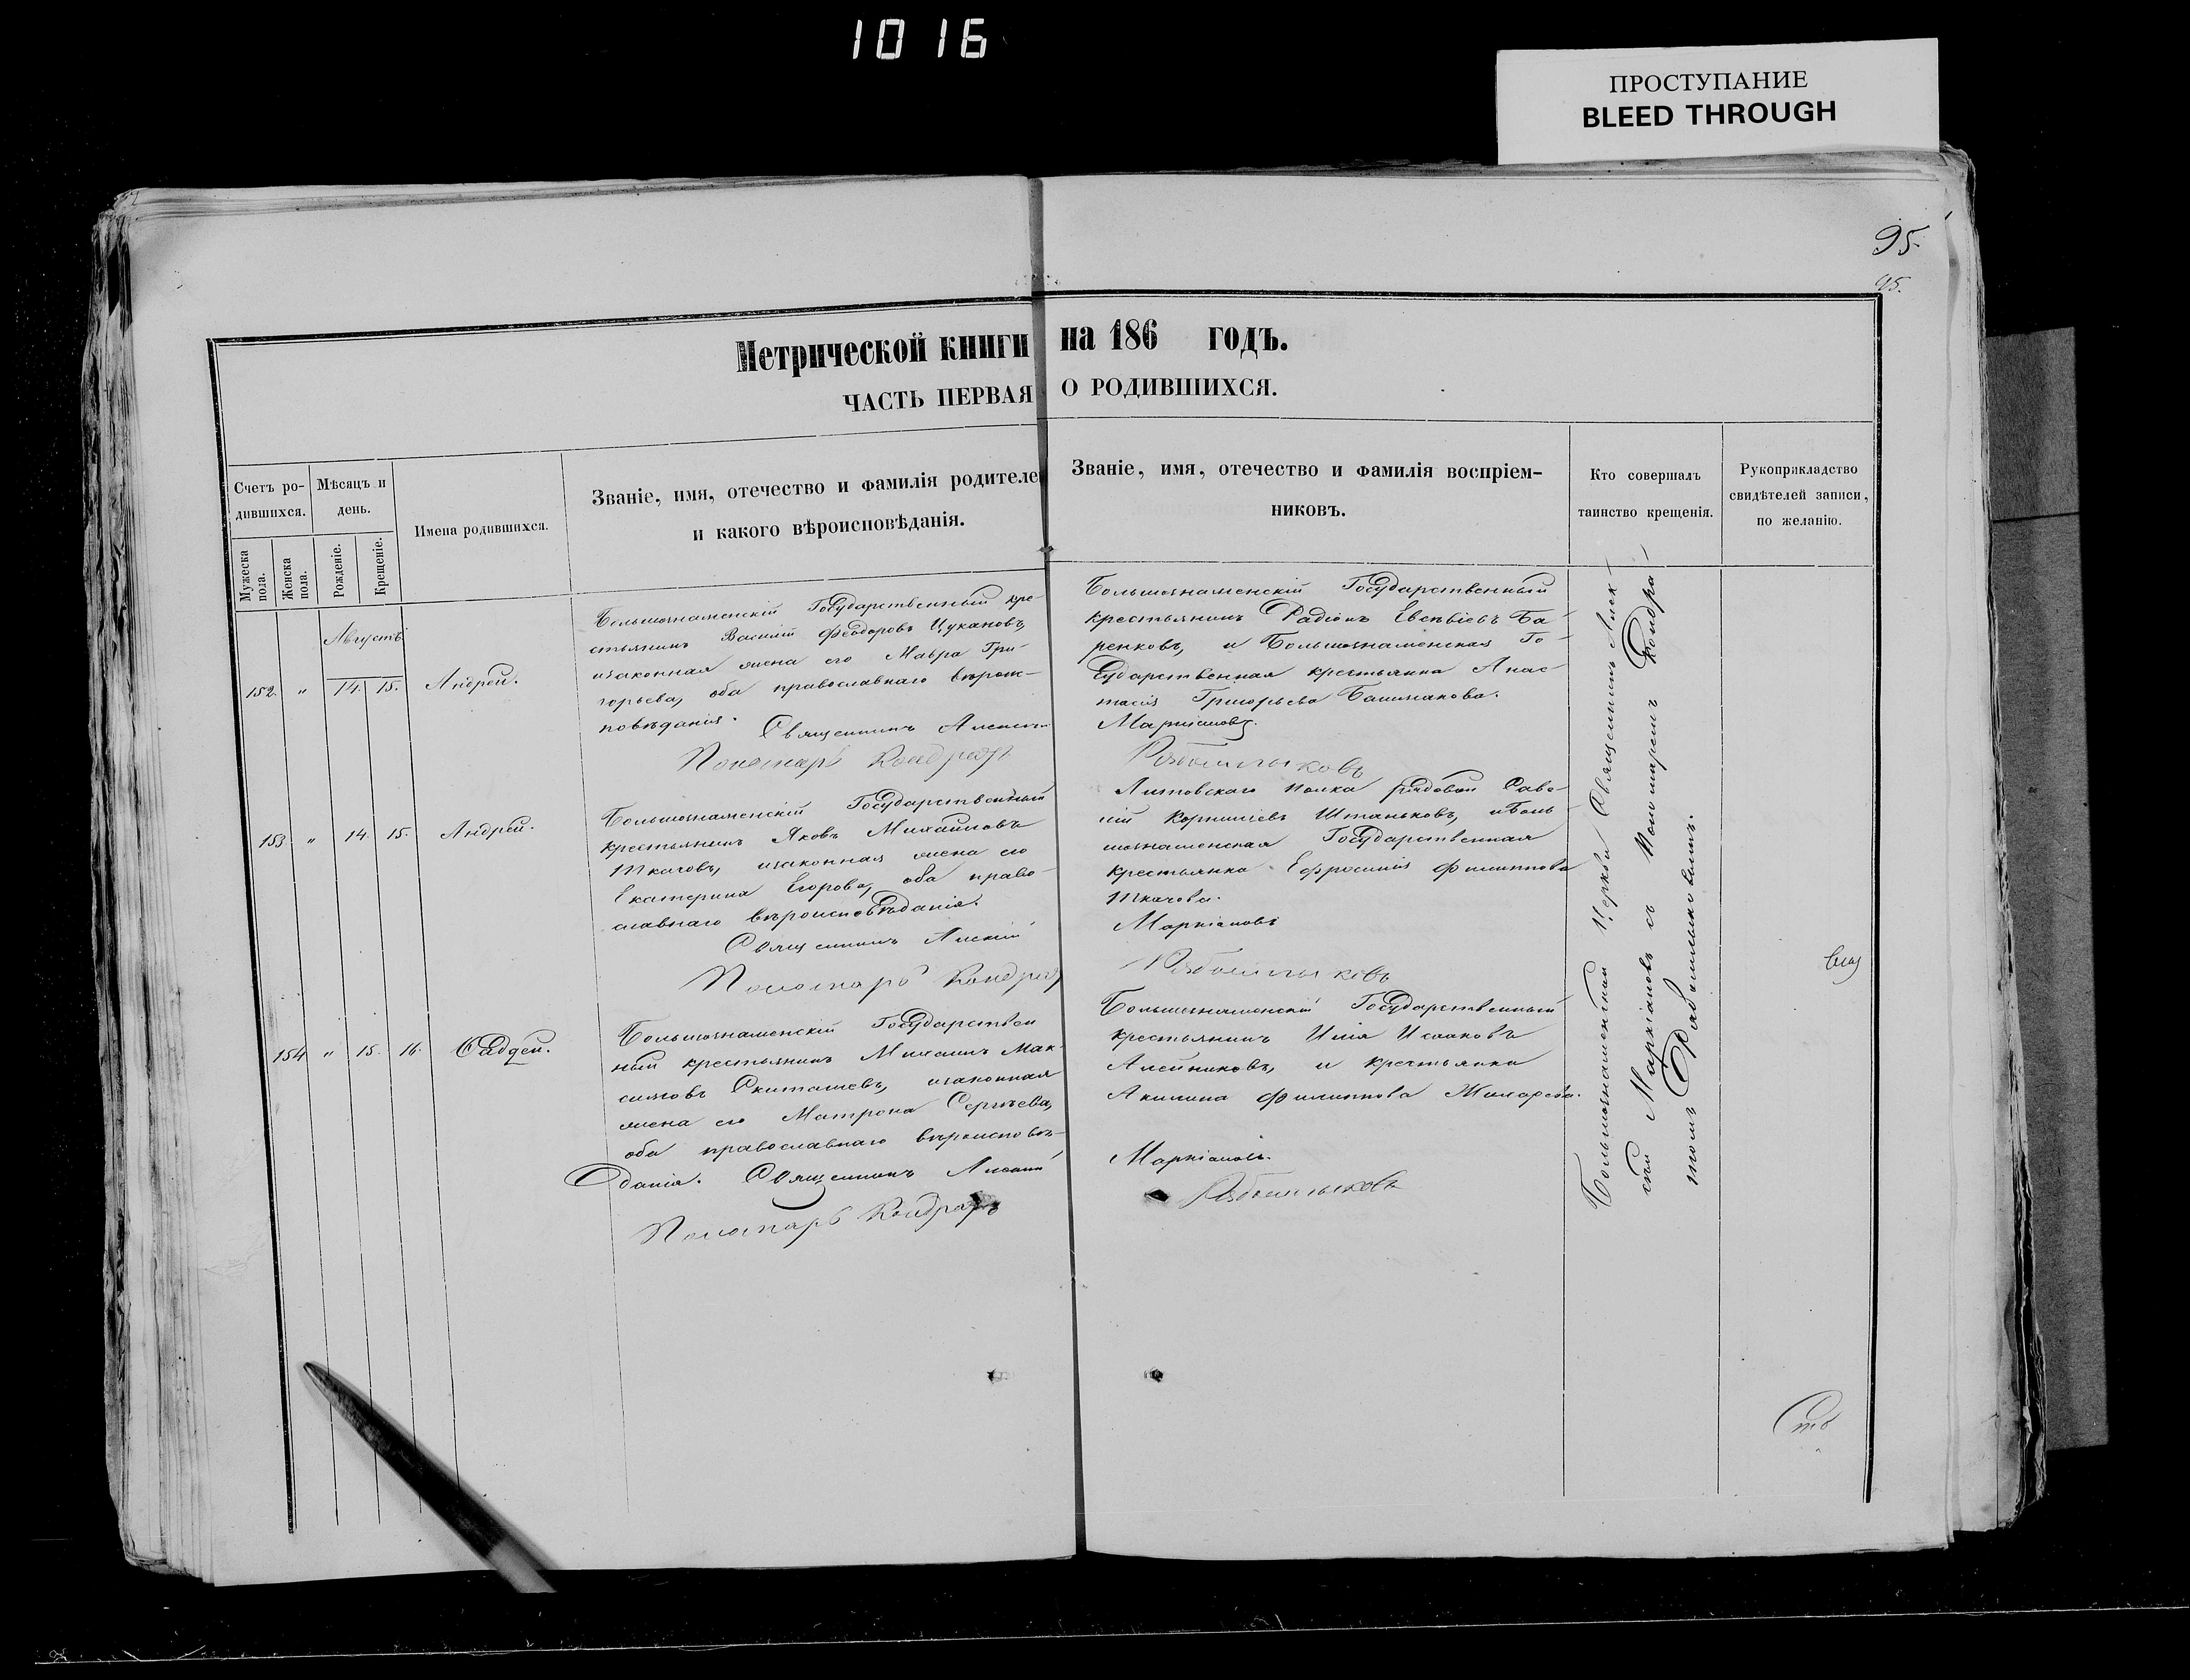 1016
ПРОСТУПАНИЕ
BLEED THROUGH
95.
95.
Метрической книги на 186 годъ.
ЧАСТЬ ПЕРВАЯ О РОДИВШИХСЯ.
Счетъ ро-
дившихся.
Мужеска пола.
Женска пола.
Мѣсяцъ и
день.
Рожденіе.
Крещеніе.
Имена родившихся.
Званіе, имя, отечество и фамилія родителе
и какого вѣроисповѣданія.
Званіе, имя, отечество и фамилія воспріем-
никовъ.
Кто совершалъ
таинство крещенія.
Рукоприкладство
свидѣтелей записи,
по желанію.
Августъ
152. " 14. 15. Андрей.
Большознаменскій Государственный кре-
стьянинъ Василій Феодоровъ Цукановъ,
изаконная жена его Мавра Гри-
горьева, оба православнаго вѣроис-
повѣданія.
Священникъ Алексій
Пономарь Кондратъ
Большознаменскій Государственный
крестьянинъ Радіонъ Евсѣвіевъ Ба-
ренковъ, и Большознаменская Го-
сударственная крестьянка Анас-
тасія Григорьева Башмакова.
Маркіановъ.
153 " 14. 15. Андрей.
Большознаменскій Государственный
крестьянинъ Яковъ Михайловъ
Ткачовъ, изаконная жена его
Екатерина Егорова, оба право-
славнаго вѣроисповѣданія.
Священникъ Алексій
Пономарь Кондрат
Литовскаго полка рядовой Саве-
лій Корнилъевъ Штаньковъ, иБоль
шознаменская Государственная
крестьянка Ефросинія Филиппова
Ткачова.
Маркіановъ
154 " 15. 16. Фаддей.
Большознаменскій Государствен
ный крестьянинъ Михаилъ Мак-
симовъ изаконная
жена его Матрона Сергѣева,
оба православнаго вѣроисповѣ-
данія. Священникъ Алексій
Пономарь Кондратъ
Большознаменскій Государственный
крестьянинъ Илія Исааковъ
Алейниковъ, и крестьянка
Акилина Филиппова Жиларева.
Маркіановъ.
Большознаменской Церкви Священникъ Алек-
сѣй Маркіановъ съ Пономаремъ Кондра-
томъ